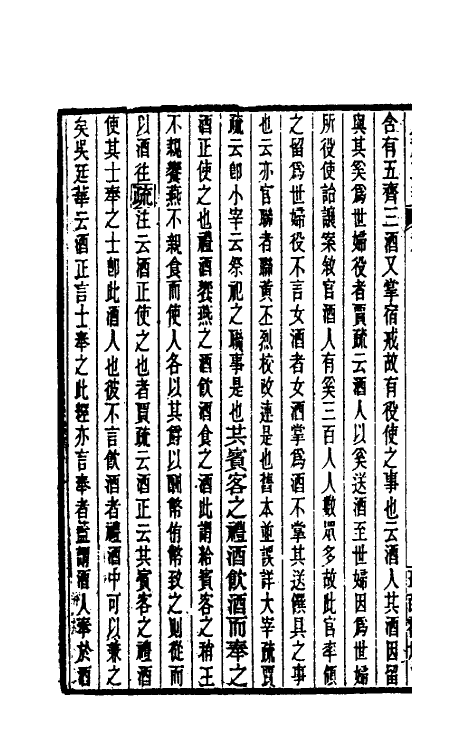 含有五齊三酒又掌宿戒故有役使之事也云酒人其酒因留
與其奚爲世婦役者賈疏云酒人以奚送酒至世婦因爲世婦
所役使詒讓案敘官酒人有奚三百人人數眾多故此官率領
之留爲世婦役不言女酒者女酒掌爲酒不掌其送饌具之事
也云亦官聯者聯黃丕烈校改連是也舊本並誤詳大宰疏賈
疏云卽小宰云祭祀之聯事是也共賓客之禮酒飮酒而奉之
酒正使之也禮酒饗燕之酒飮酒食之酒此謂給賓客之稍王
不親饗燕不親食而使人各以其爵以酬幣侑幣致之則從而
以酒往疏注云酒正使之也者賈疏云酒正云共賓客之禮酒
使其士奉之士卽此酒人也彼不言飮酒者禮酒中可以兼之
矣吳廷華云酒正言士奉之此經亦言奉者蓋謂酒人奉於酒